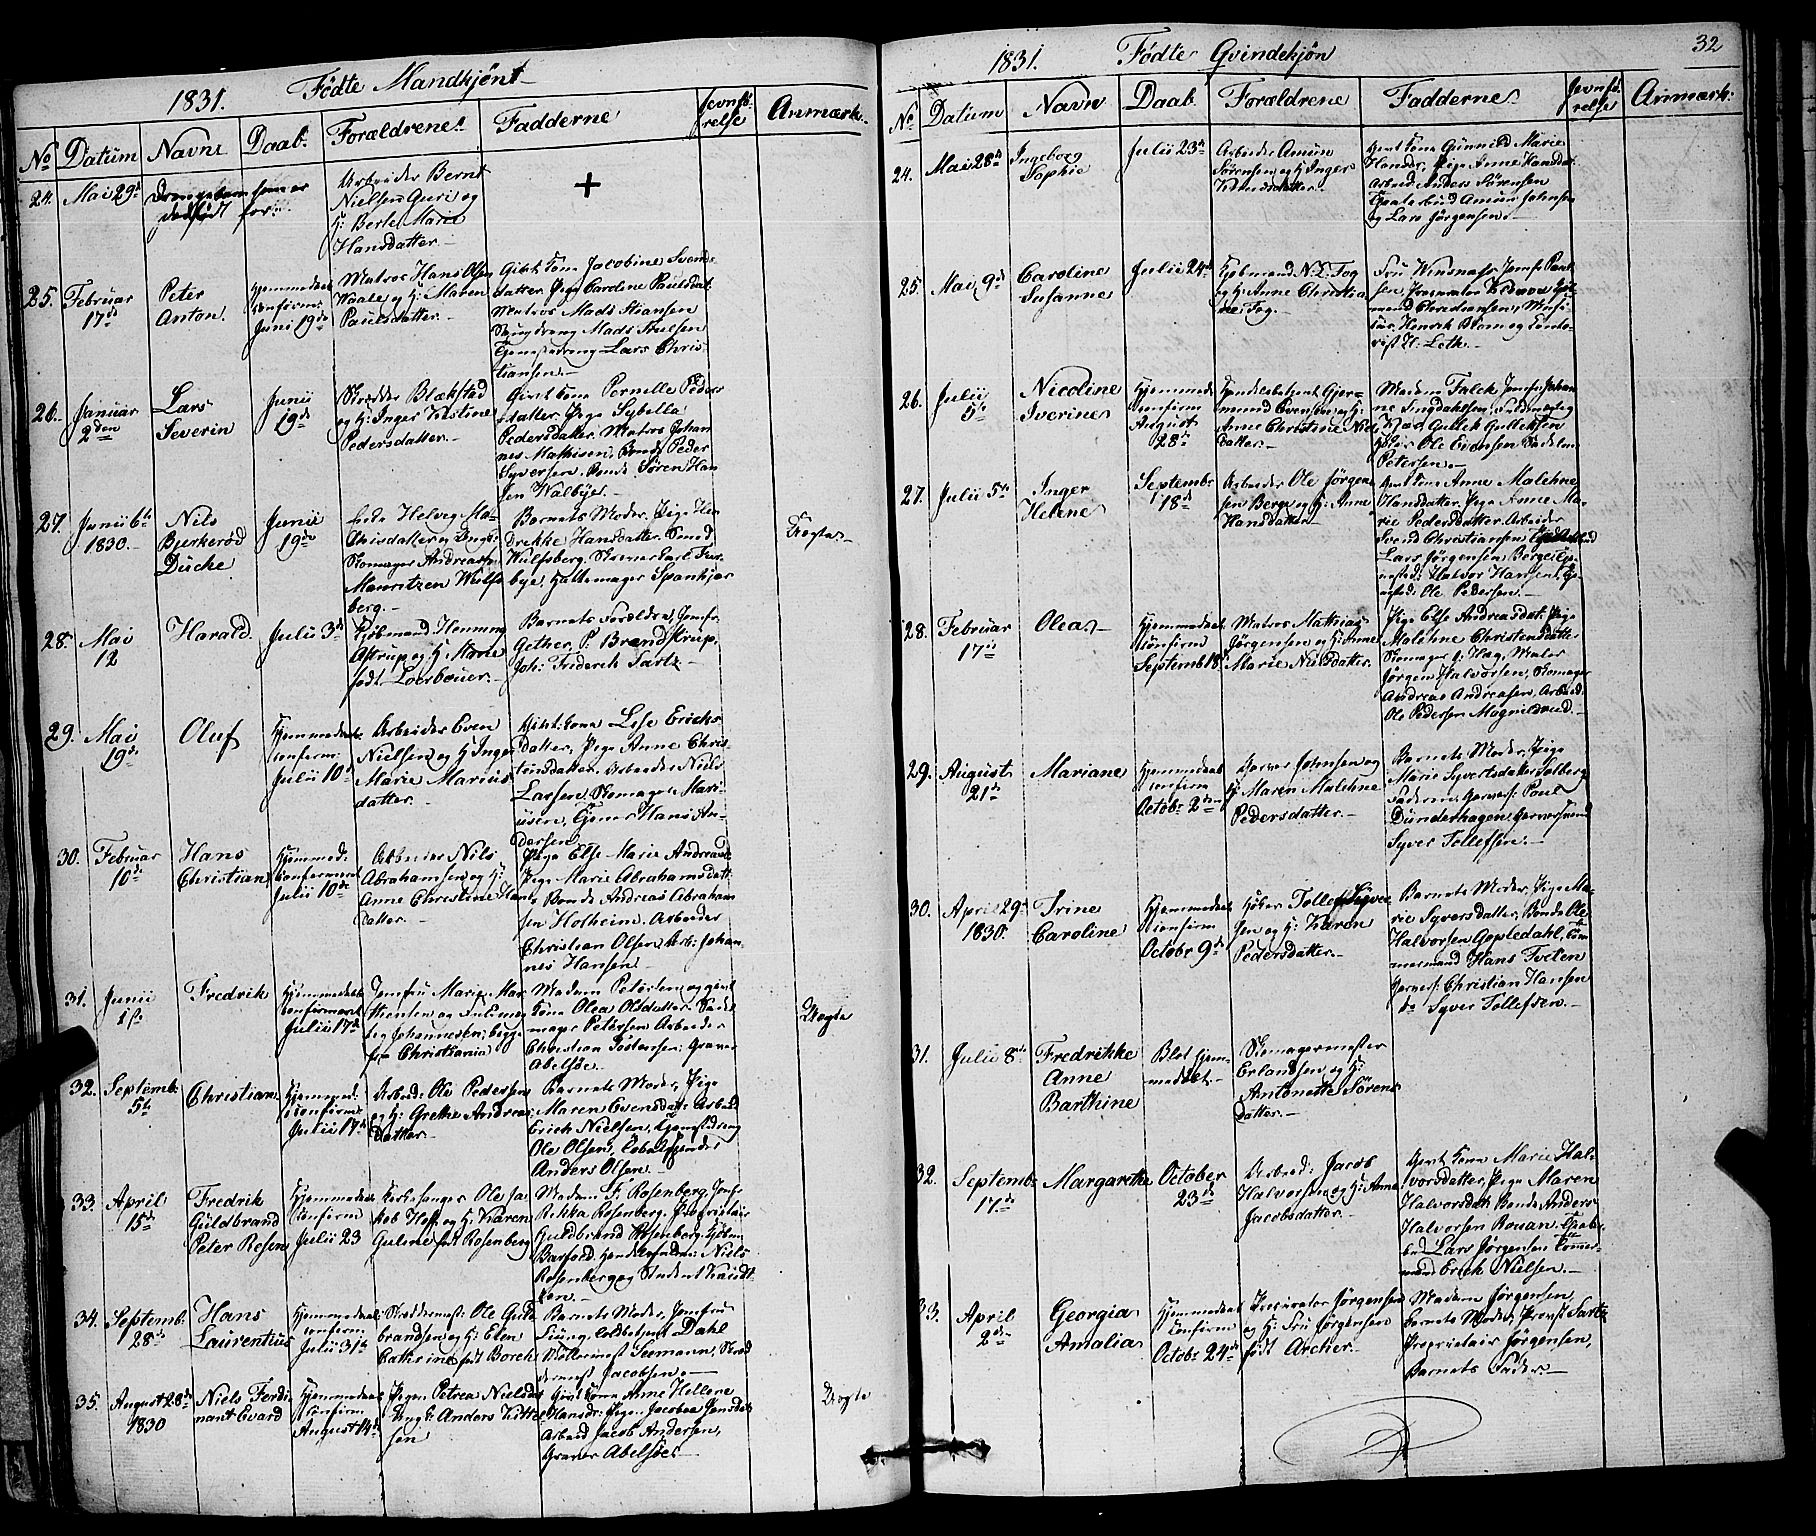 1831. Fødte Mandkjønt
No Datum Navne Daab. Forældrene Fadderne Jevnfö- relse Anmærk.
24. Mai 29de Drengebarn som er dødfødt
Arbeider Bernt
Nielsen Guri og
H: Berte Marie
Hansdatter.
+
25. Februar 17de
Peter
Anton.
Hjemmedøbt
Confirmr
Juni 19de
Matros Hans Olsen
Waale og H: Maren
Paulsdatter.
Givt Kone Jacobine Svends
datter, Pige Caroline Paulsdat.
Matros Mads Stiansen
Mads
Tjenestedreng Lars Chris
tiansen.
26. Januar 2den
Lars
Severin
Junii
19de
Skredder Blækstad
og H: Inger Kirstine
Pedersdatter.
Givt Kone Pernille Peders
datter, Pige Sybella
Pedersdatter. Matros Johan
nes Mathisen, Bonde Peder
Syversen. Bonde Sören Han
sen Walbye.
27. Junii 6te 1830.
Nils
Bjerkerød
Ducke
Junii
19de
Helvig Ma-
thisdatter og Ungk:
Skomager Andreas
Mauritzen Wulfs
berg.
Barnets Moder, Pige Hen
drikke Hansdatter. Smed
Wulfsberg. Skriver Carl Fur
bye, Hattemager Spankjær
Uægte
28. Mai 12
Harald.
Julii 3de
Kjøbmand Henning
Astrup og H: Marie
født Loerbouer.
Barnets Foreldre, Jomfr
Gether, P. Brandstrup,
Joh: Friderich Sartz.
29. Mai 19de
Oluf
Hjemmedøbt
Confirm
Julii 10de
Arbeider Even
Nielsen og H: Inger
Marie Marius
datter.
Givt Kone Lise Erichs
datter, Pige Anne Chris-
tensdatter. Arbeider Niels
Larsen, Skomager Mari-
usen, Tjener Hans An-
dersen
30. Februar 10de
Hans
Christian
Hjemmed:
Confirmeret
Julii 10de
Arbeider Nils
Abrahamsen og H:
Anne Christine Hans
datter.
Pige Else Marie Andreasd
Pige Marie Abrahamsdatt
Bonde Andreas Abraham
sen Holtheim. Arbeider
Christian Olsen, Arb: Johan-
nes Hansen.
31. Junii 1ste
Fredrik
Hjemmedøbt
Confirmeret
Julii 17de
Jomfru Marie Mar
Johannesen; begge
fra Christiania
Madam Petersen og givt
Kone Olea Olsdatter. Sadel
mager Petersen Arbeider
Christian Graver
Abelsøe.
Uægte
32. Septemb: 5te
Christian
Hjemmed
Confirm
Julii 17de
Arbeid: Ole Pedersen
og H: Grethe Andreas
datter.
Barnets Moder, Pige
Maren Evensdatr Arbeid
Erich Nielsen, Tjenestdreng
Ole Olsen,
Anders Olsen.
33. April 15de
Fredrik
Guldbrand
Peter Resen
Hjemmedøbt
Confirm
Julii 23
Kirkesanger Ole Ja
kob Hoff og H: Karen
Guline født Rosenberg
Madam F: Rosenberg. Jomf:
Rikka Rosenberg. Proprietair
Guldbrand Rosenberg, Kjøbm
Barford, Niels
Rosenberg og Student Knudt
zen.
34. Septemb: 28de
Hans
Laurentius
Hjemmedøbt
Confirm
Julii 31te
Skreddermest: Ole Guld
brandsen og H: Elen
Cathrine født Borch
Barnets Moder, Jomfru
Dahl
Møllermest Seemann, Skræd
dermest Jacobsen.
35. August 28de 1830
Niels Ferdi
nant Evard
Hjemmedøbt
Confirm
August 14de
Pigen Petrea Nielsdat
Ungk: Anders Kittel
sen
Givt Kone Anne Hellene
Hansdr: Pige Jacobea Jensdat
Arbeid Jacob Andersen,
Graver Abelsøe.
Uægte
32
1831. Fødte Qvindekjøn
No Datum Navn Daab. Forældrene Fadderne. Jevnfö- relse Anmærk:
24. Mai 28de
Ingeborg
Sophie
Julii 23de
Arbeider Amun
Sørensen og H: Inger
datter.
Givt Kone Gunnild Marie
Hansdr, Pige Anne Hansdat.
Arbeid Anders Sørensen
Amun Johnsen
og Lars Jørgensen.
25. Mai 9de
Caroline
Susanne
Julii 24de
Kjøbmand N. L. Fog
og H: Anne Christia
ne Fog.
Fru Winsnæss, Jomfr Paul
sen, Procurator
mand Christiansen,
Henrik Blom og
H: Leth.
26. Julii 5te
Nicoline
Iverine
Hjemmedø
Confirm
August
28de
Handelsbetjent Gjer-
mund Evensen og H:
Anne Christine Niels
datter.
Madam Falck, Jomfr Johan
ne Ingdahlsen, Fuldmægtig
Kjær, Gullik Gulliksen
Ole Evensen,
Petersen.
27. Julii 5te
Inger
Helene
Septembr
18de
Arbeider Ole Jørgen
sen Berge og H: Anne
Hansdatter.
Givt Kone Anne Malehne
Hansdatter, Pige Anne Ma-
rie Pedersdatter. Arbeider
Svend Christiansen
Lars Jørgensen Berge,
Halvor Hansen,
Ole Pedersen.
28. Februar 17de
Olea.
Hjemmedøbt
Confirm
Septemb 18
Matros Mathias
Jørgensen og H: Anne
Marie Nielsdatter.
Pige Else Andreasdat: Pige
Malehne Christensdatter
Skomager J: Hag, Maler
Jørgen Halvorsen, Skomager
Andreas Andreasen, Arbeid:
Ole Pedersen Magnildrud.
29. August 21de
Mariane
Hjemmedøbt
Confirm
Octobr 2den
Garver Johnsen og
H: Maren Malehne
Pedersdatter.
Barnets Moder, Pige
Marie Syvertsdatter Solberg
Faderen, Garvers: Paul
Dunderhagen, Garversvend
Syver Tollefsen.
30. April 29de 1830.
Trine
Caroline
Hjemmedøbt
Confirm
Octobr 9de
Høker Tollef Syver
sen og H: Karen
Pedersdatter.
Barnets Moder, Pige Ma-
rie Syversdatter, Bonde Ole
Halvorsen Gopledahl, Töm
mermand Hans Tveten
Garvers: Christian Hansen
do Syver Tollefsen.
31. Julii 8de
Fredrikke
Anne
Barthine
Blot hjem
medøbt.
Skomagermester
Erlandsen og H:
Antonette Sörens
datter.
32. Septemb: 17de
Margarethe
October
23de
Arbeid: Jacob
Halvorsen og H: Anne
Jacobsdatter.
Givt Kone Marie Hal-
vorsdatter, Pige Maren
Halvorsdatr Bonde Anders
Halvorsen Rouan.
Lars Jørgensen Tömmer-
mand Erich Nielsen.
33. April 2den
Georgia
Amalia
Hjemmedøbt
Confirm
Octobr 24de
Procurator Jørgensen
og H: Fru Jørgensen
født Archer.
Madam Jørgensen,
Barnets Moder, Provst Sartz
Proprietair Jørgensen,
Barnets Fader.